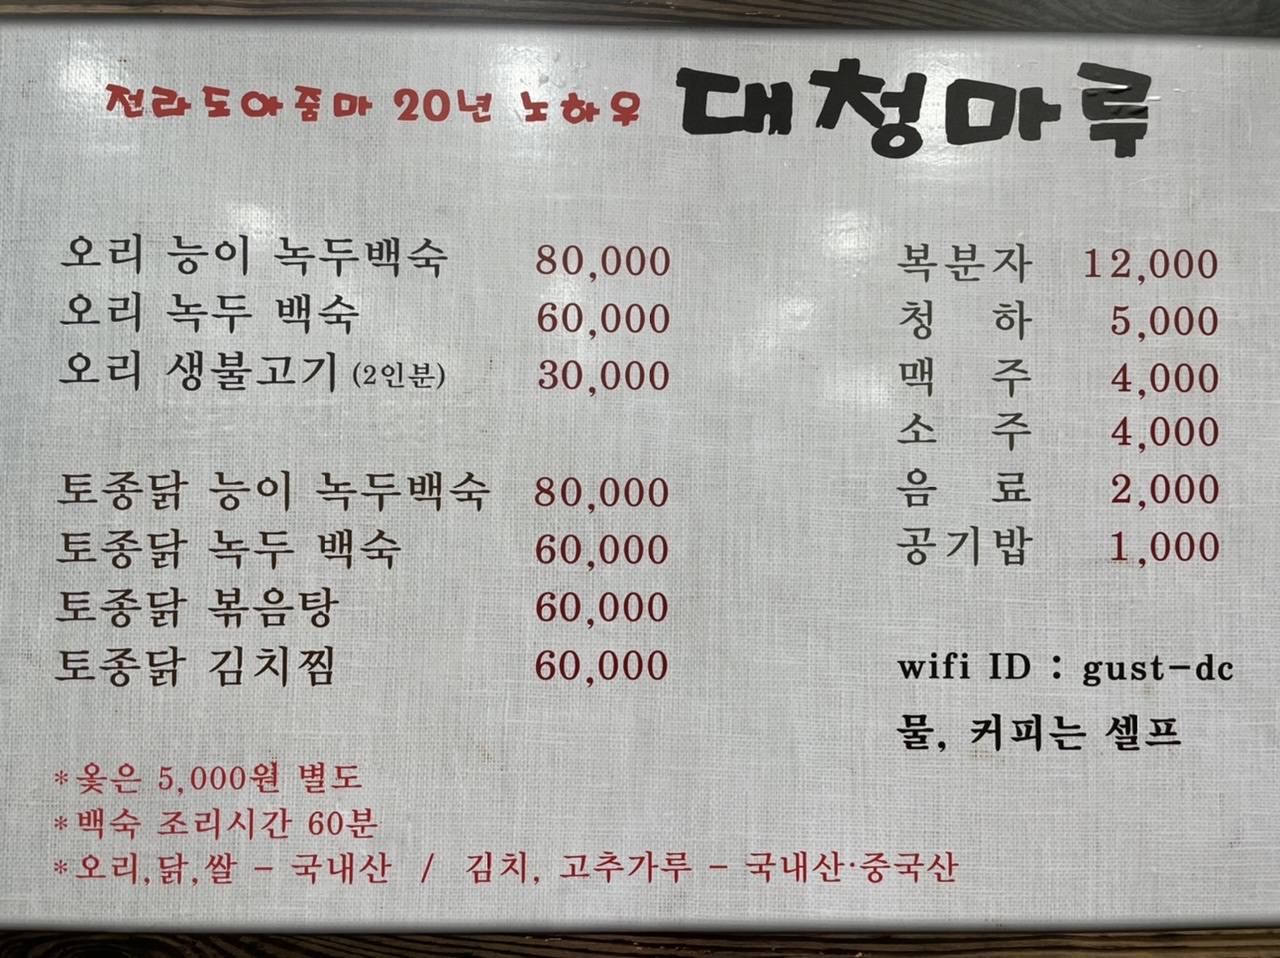 전라도아줌마 20년 노하우 대청마루
오리 능이 녹두백숙 80,000
오리 녹두 백숙 60,000
오리 생불고기 (2인분) 30,000
토종닭 능이 녹두백숙 80,000
토종닭 녹두 백숙 60,000
토종닭 볶음탕 60,000
토종닭 김치찜 60,000
복분자 12,000
청 하 5,000
맥 주 4,000
소 주 4,000
음 료 2,000
공기밥 1,000
wifi ID : gust-dc
물, 커피는 셀프
*옻은 5,000원 별도
*백숙 조리시간 60분
*오리,닭,쌀 - 국내산 / 김치, 고추가루 - 국내산·중국산